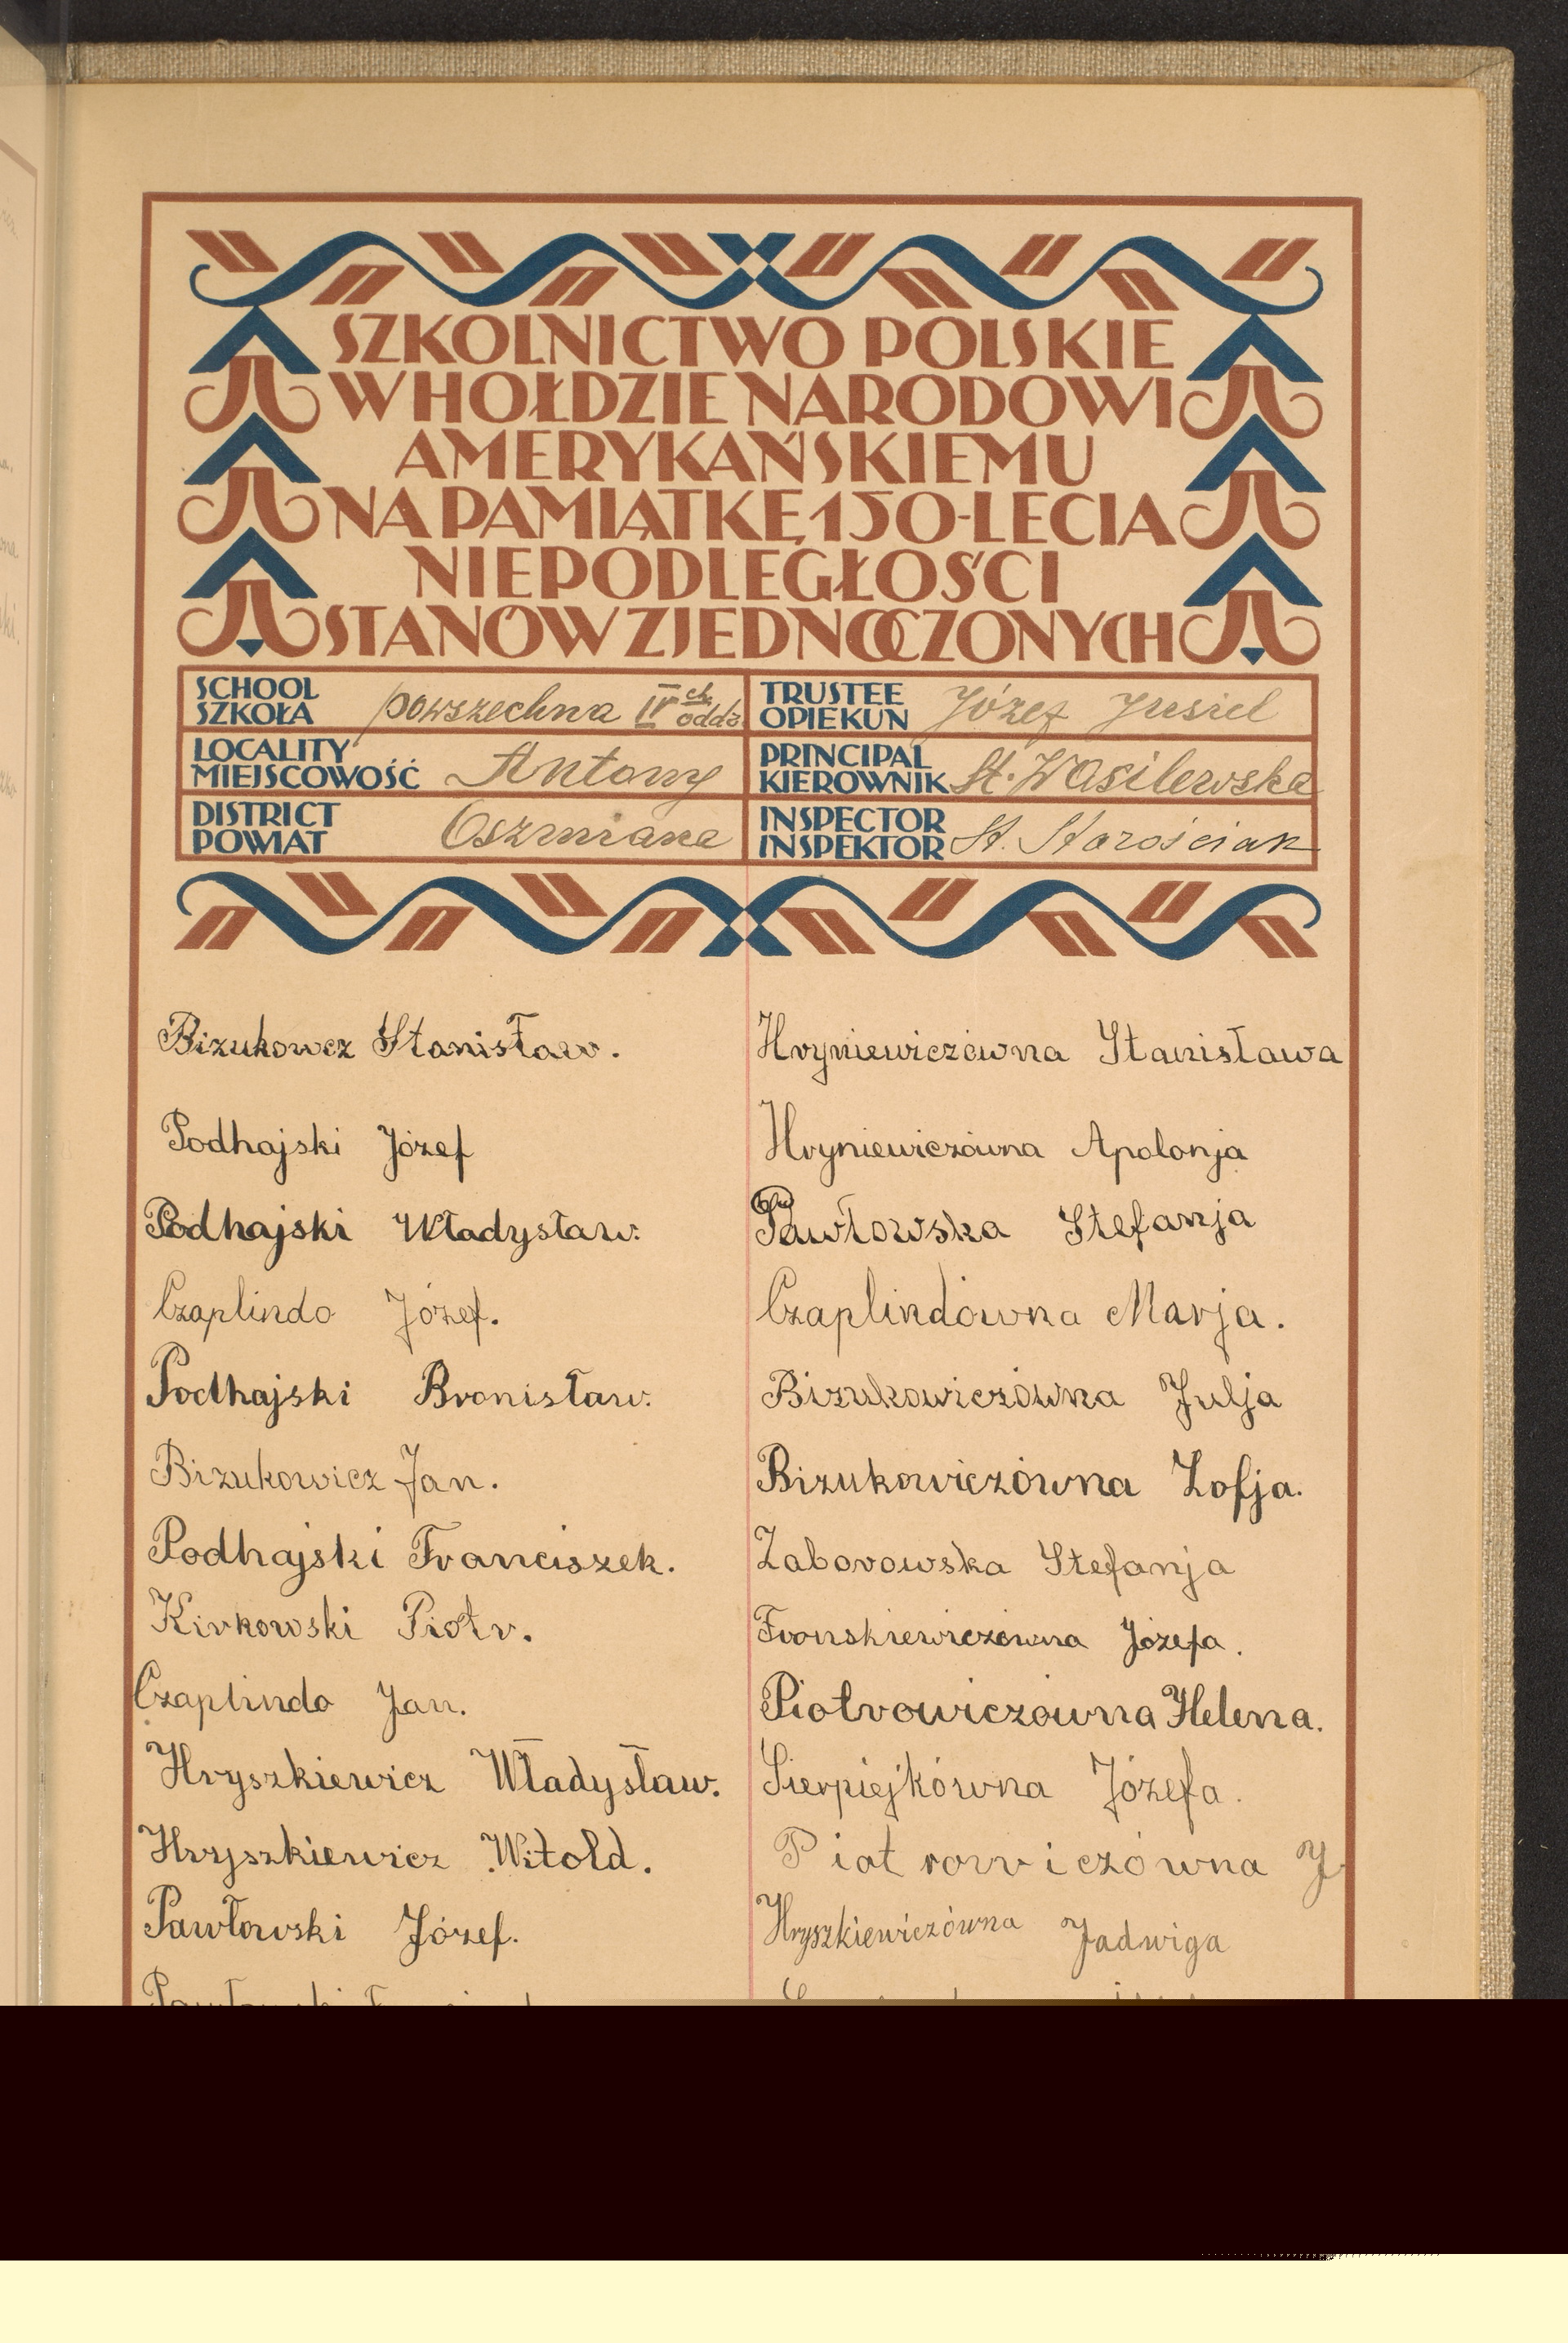 SZKOLNICTWO POLSKIE
W HOŁDZIE NARODOWI
AMERYKAŃSKIEMU
NA PAMIĄTKĘ 150-LECIA
NIEPODLEGŁOŚCI
STANÓW ZJEDNOCZONYCH
SCHOOL
SZKOŁA powszechna IV ch oddz
TRUSTEE
OPIEKUN Józef Jusiel
LOCALITY
MIEJSCOWOŚĆ Antony
PRINCIPAL
KIEROWNIK St. Wasilewska
DISTRICT
POWIAT Oszmiana
INSPECTOR
INSPEKTOR St. Starościak
Bizukowcz Stanisław.
Podhajski Józef
Podhajski Władysław.
Czaplindo Józef.
Podhajski Bronisław.
Bizukowicz Jan.
Podhajski Franciszek.
Kirkowski Piotr.
Czaplindo Jan.
Hryszkiewicz Władysław.
Hryszkiewicz Witold.
Pawłowski Józef.
Hryniewiczówna Stanisława
Hryniewiczówna Apolonja
Pawłowska Stefanja
Czaplindówna Marja.
Bizukowiczówna Julja
Bizukowiczówna Zofja.
Zaborowska Stefanja
Fronskiewiczówna Józefa.
Piotrowiczówna Helena.
Sierpiejkówna Józefa.
Piotrowiczówna J
Hryszkiewiczówna Jadwiga